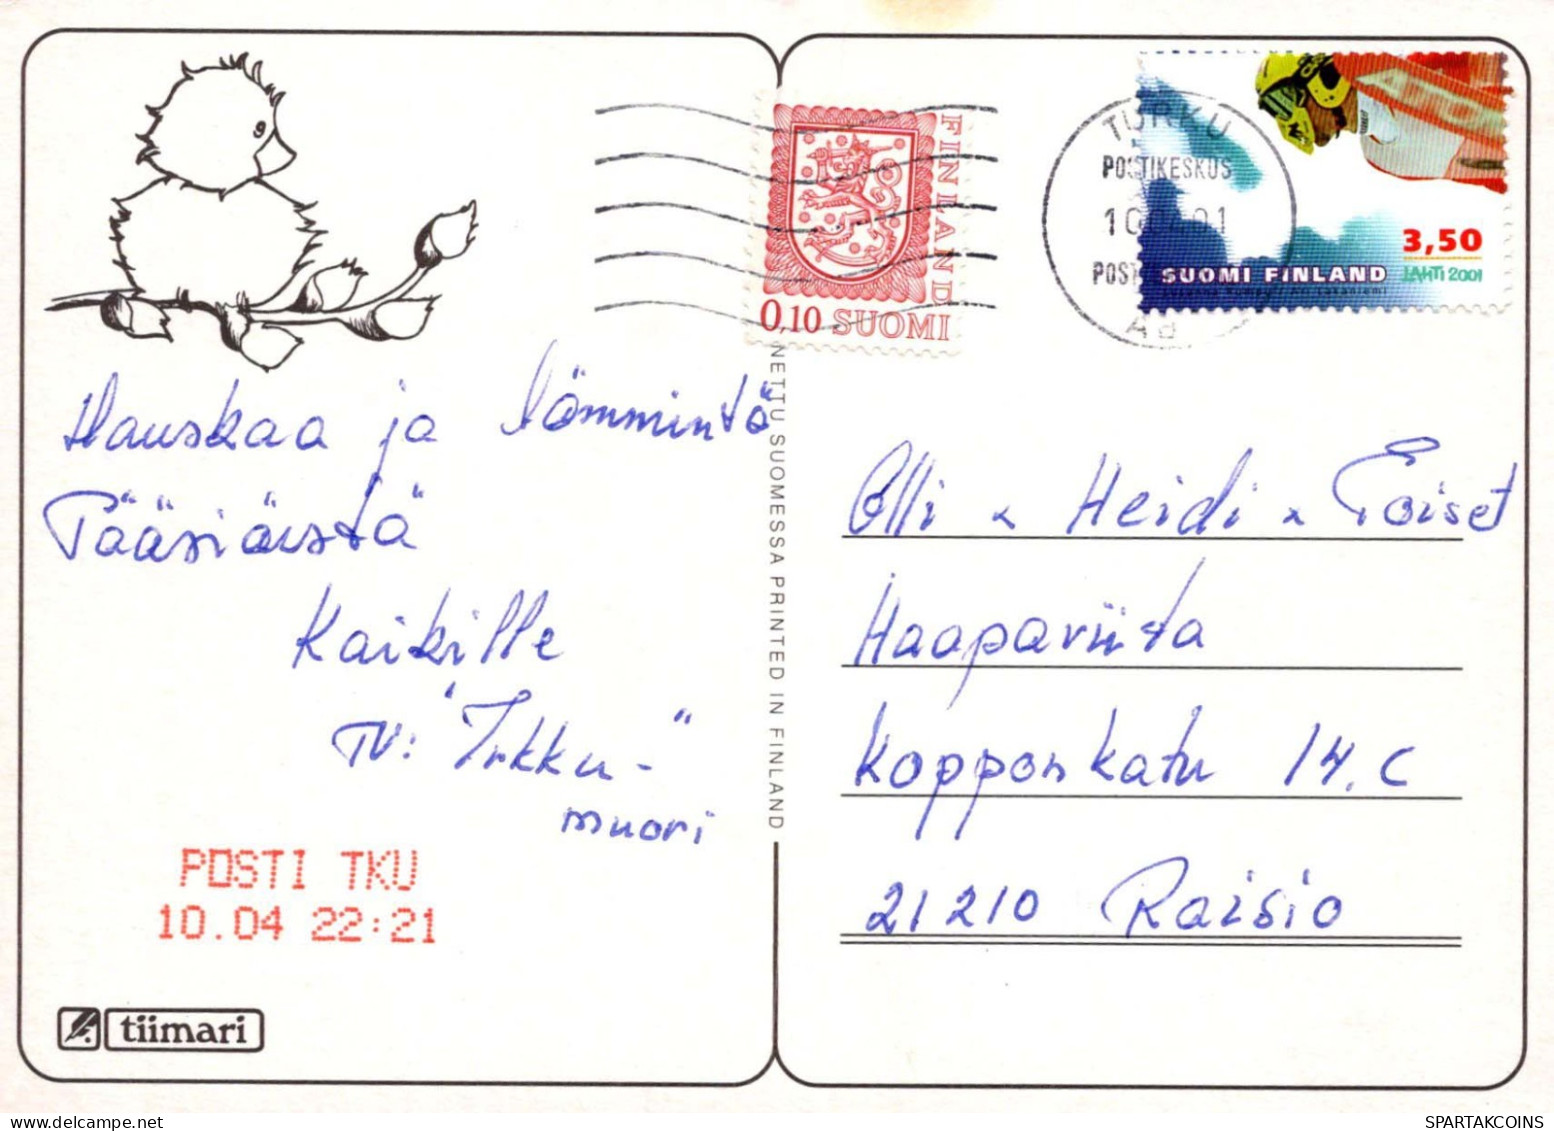 FINLAND
0,10 SUOMI
TURKU
POSTIKESKUS
POSTI
AB
3,50
SUOMI FINLAND
LAHTI 2001
Hauskaa ja lämmintä
Pääsiäistä
Kaikille
TV: "Irkku-"
muori
POSTI TKU
10.04 22:21
tiimari
NETTU SUOMESSA PRINTED IN FINLAND
Olli & Heidi & Toiset
Haapaviita
Kopponkatu 14. C
21210 Raisio
SPARTAKCOINS